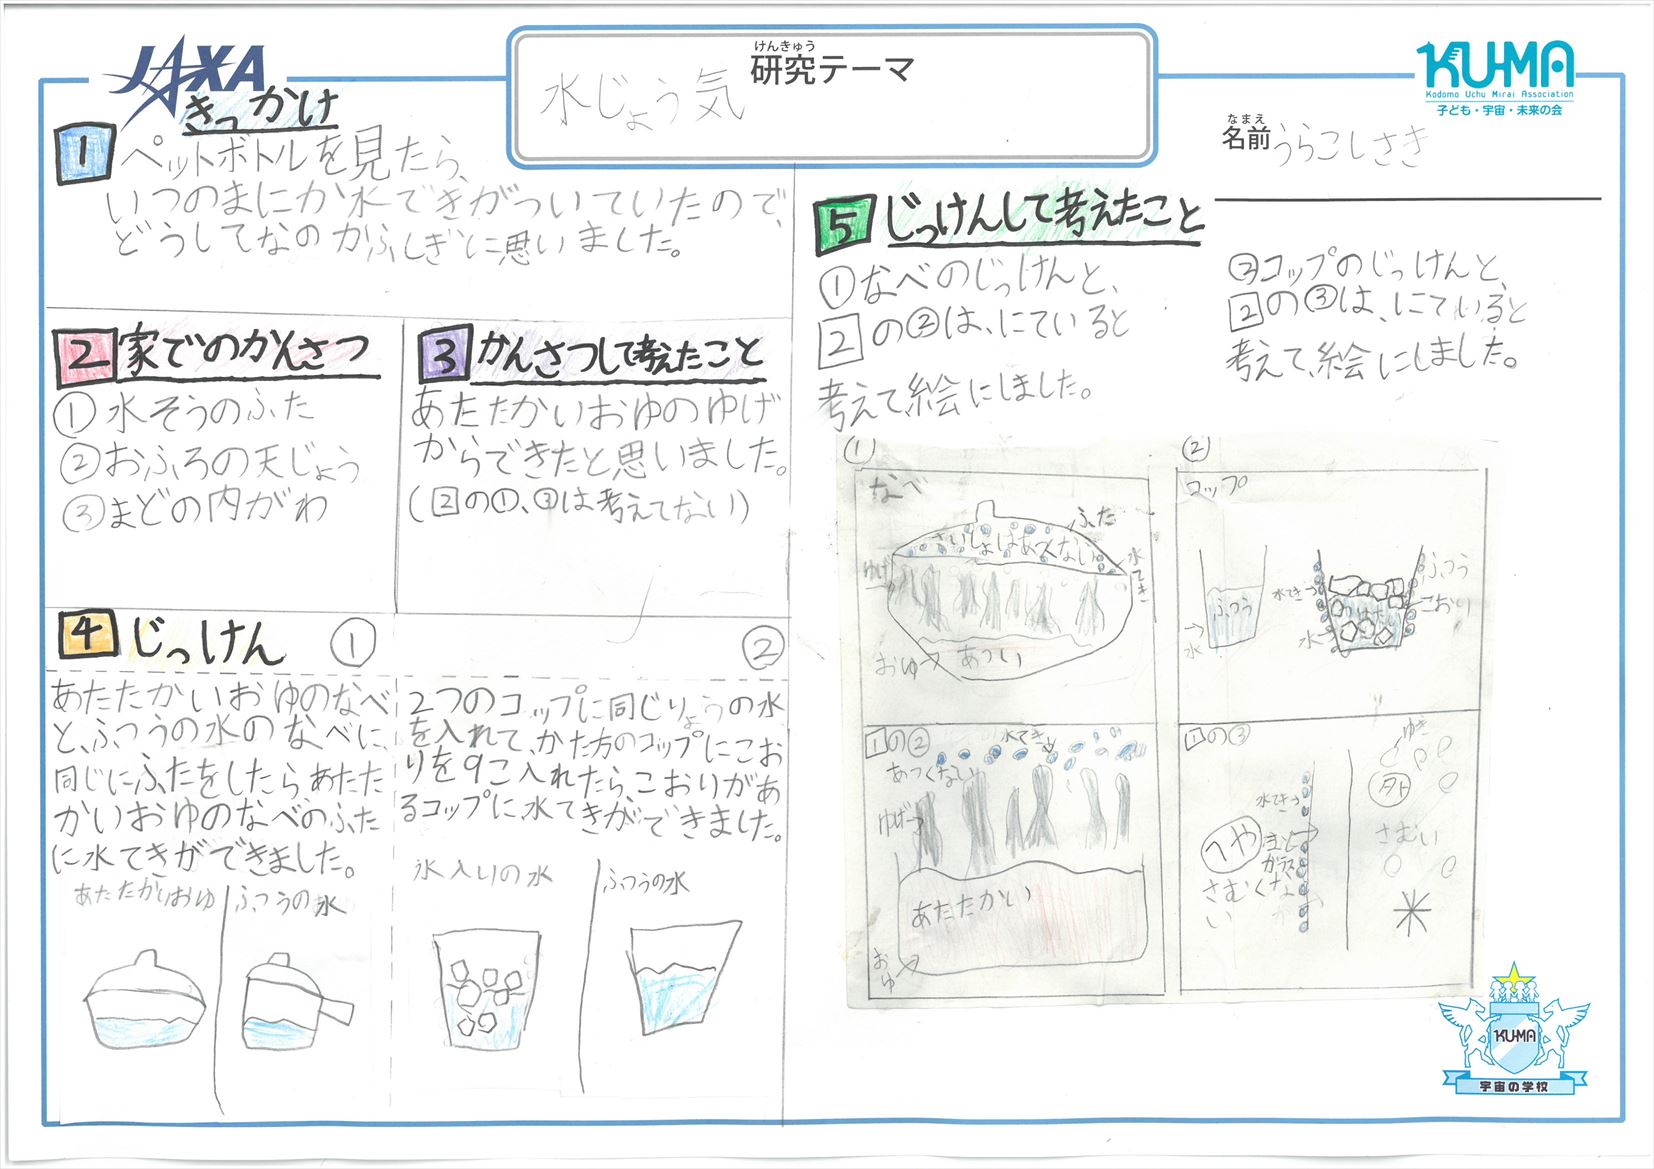 JAXA
けんきゅう
研究テーマ
水じょう気
KU-MA
Kodomo Uchu Mirai Association
子ども・宇宙・未来の会
なまえ
名前
うらこしさき
1 きっかけ
ペットボトルを見たら、
いつのまにか水てきがついていたので、
どうしてなのかふしぎに思いました。
2 家でのかんさつ
①水そうのふた
②おふろの天じょう
③まどの内がわ
3 かんさつして考えたこと
あたたかいおゆのゆげ
からできたと思いました。
(2の①、③は考えてない)
4 じっけん
①
あたたかいおゆのなべ
と、ふつうの水のなべに、
同じにふたをしたら、あたた
かいおゆのなべのふた
に水てきができました。
あたたかいおゆ
ふつうの水
②
2つのコップに同じりょうの水
を入れて、かた方のコップにこお
りを9こ入れたら、こおりがあ
るコップに水てきができました。
氷入りの水
ふつうの水
5 じっけんして考えたこと
①なべのじっけんと、
2の②は、にていると
考えて、絵にしました。
②コップのじっけんと、
2の③は、にていると
考えて、絵にしました。
①
なべ
ふた
さいしょはあつくない
水てき
ゆげ
おゆ→
あつい
②
コップ
ふつう
水
水てき
水
ふつう
こおり
1の②
水てき
あつくない
ゆげ
あたたかい
おゆ
1の③
ゆき
外
水てき
へや
まど
ガラス
さむい
さむくな
い
KU-MA
宇宙の学校